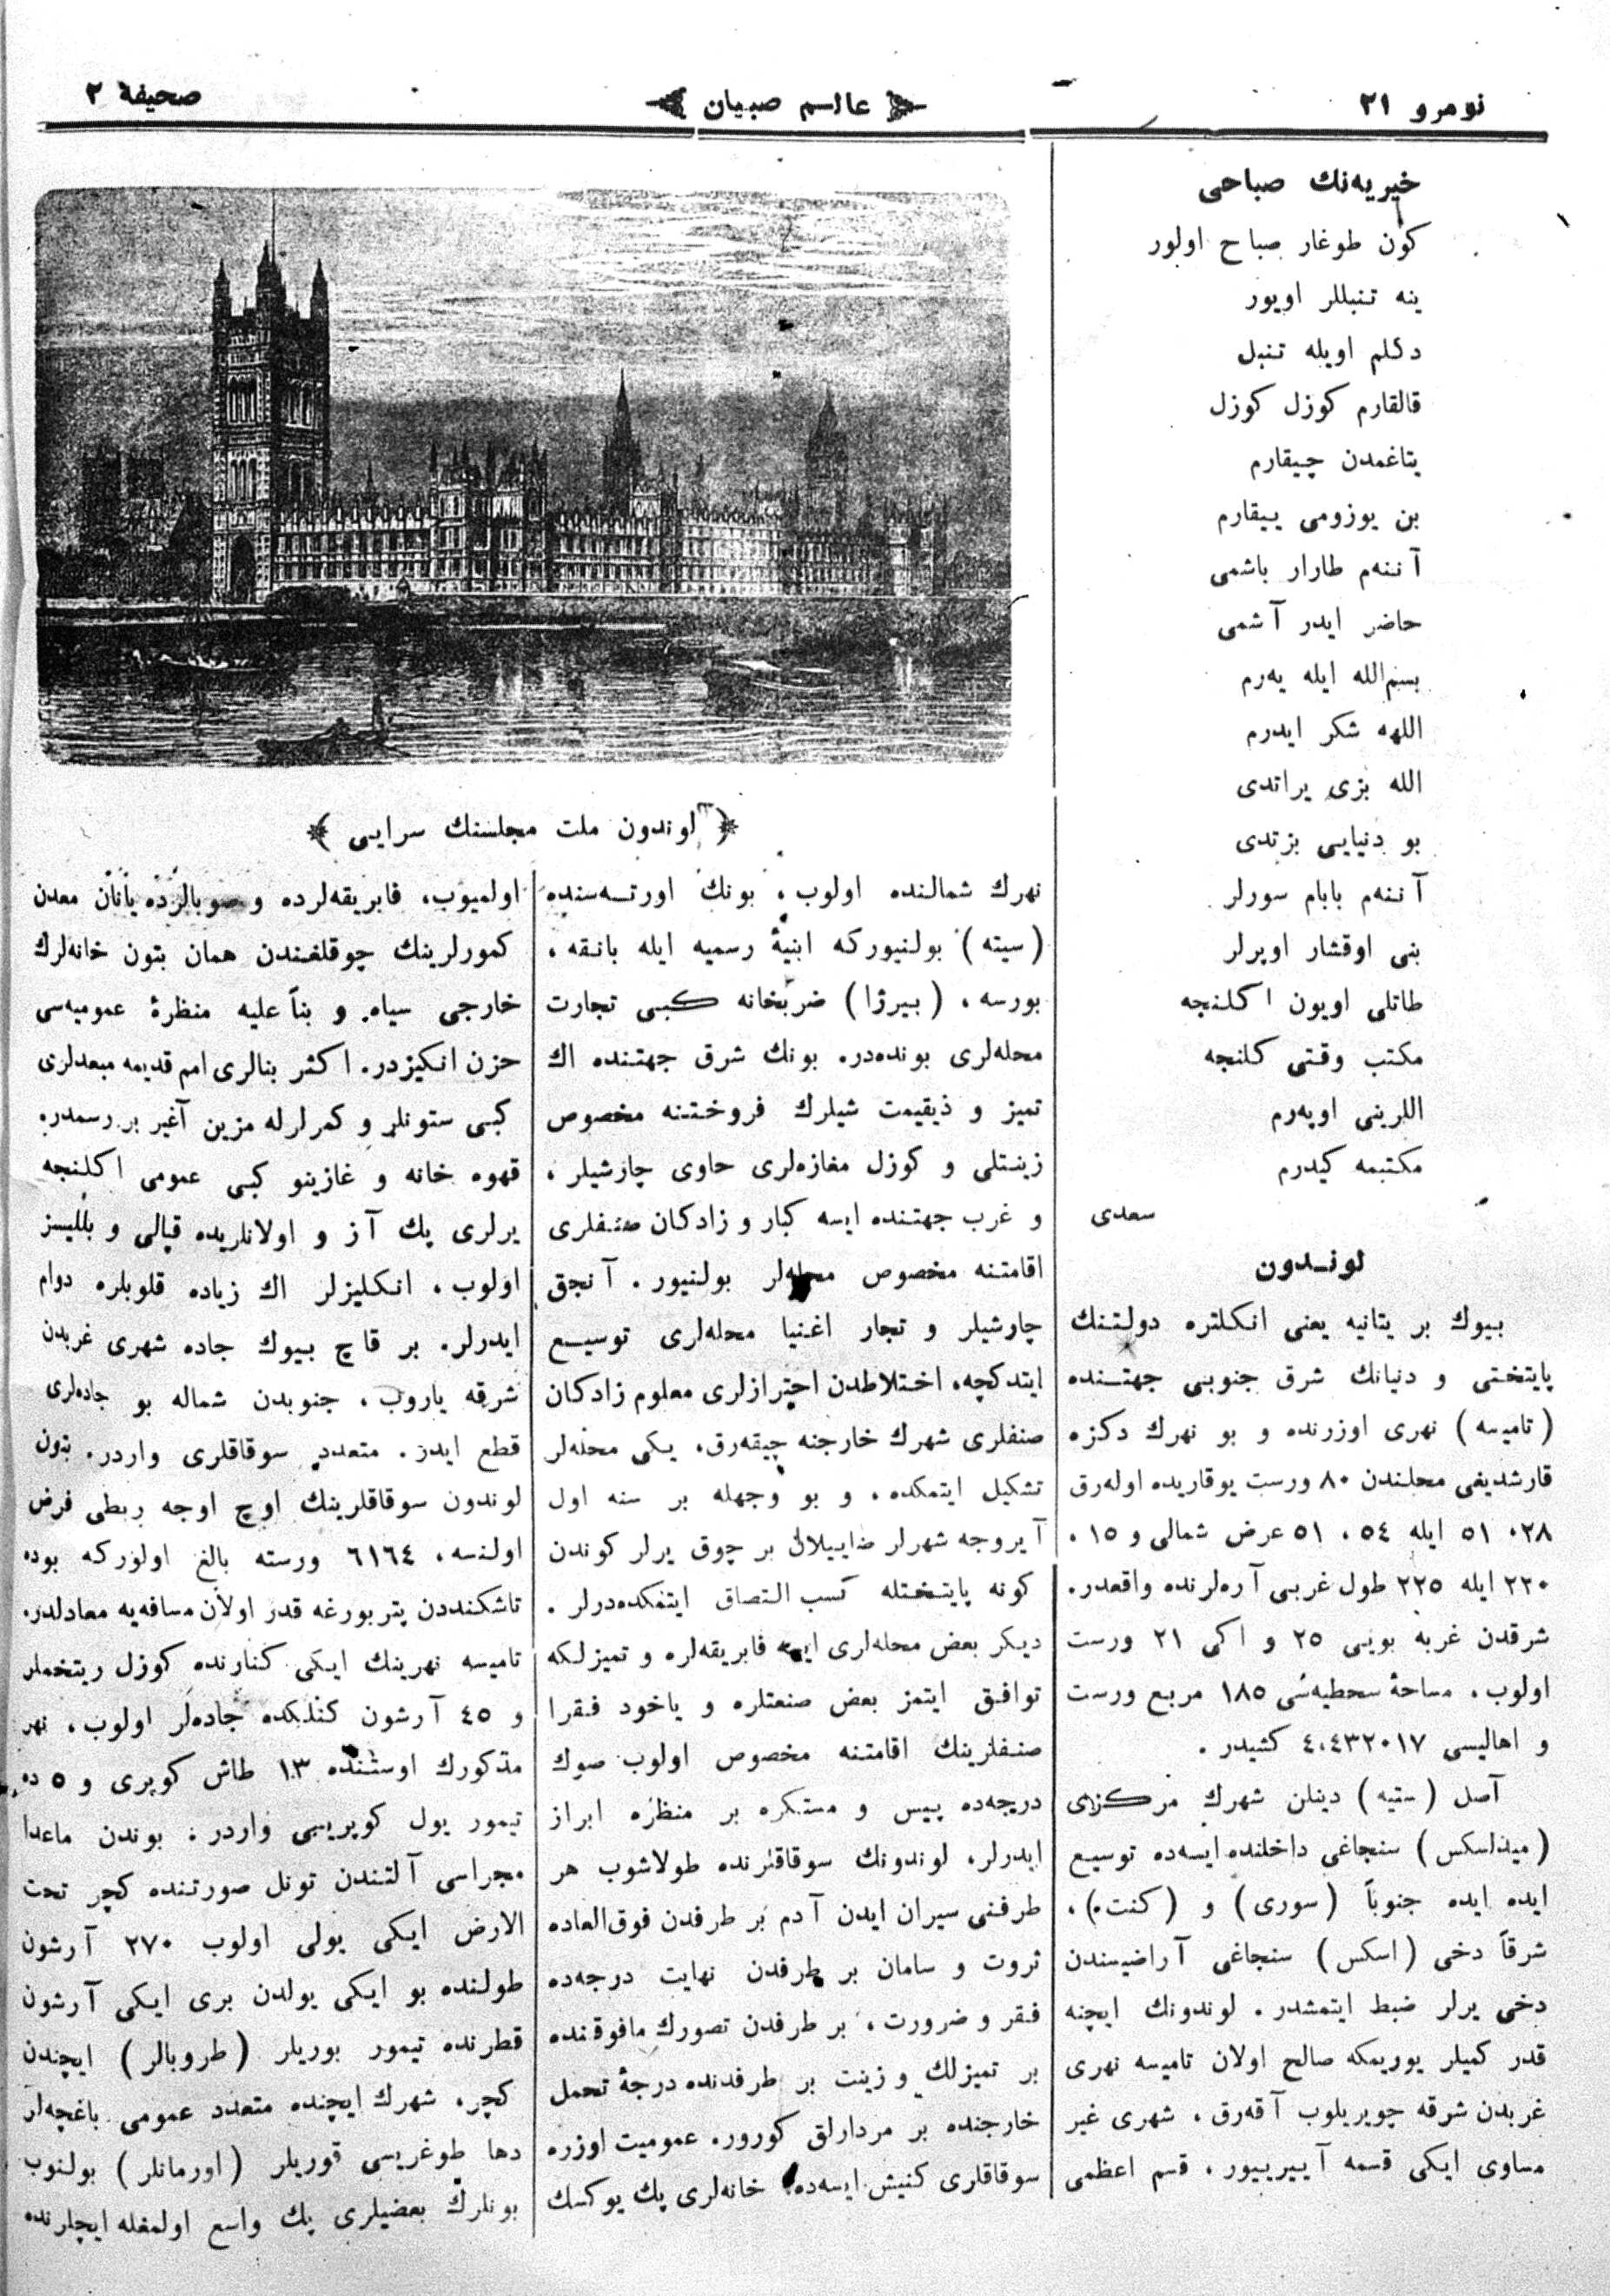 نومرو ٢١
عالم صبيان
صحيفهٔ ٢
خيريه‌نك صباحى
كون طوغار صباح اولور
ينه تنبللر اويور
دكلم اويله تنبل
قالقارم كوزل كوزل
يتاغمدن چيقارم
بن يوزومى ييقارم
آننه‌م طارار باشمى
حاضر ايدر آشمى
بسم‌الله ايله يه‌رم
اللهه شكر ايدرم
الله بزى يراتدى
بو دنيايى بزتدى
آننه‌م بابام سورلر
بنى اوقشار اوپرلر
طاتلى اويون اكلنجه
مكتب وقتى كلنجه
اللرينى اوپه‌رم
مكتبمه كيدرم
سعدى
لوندون
بيوك بريتانيه يعنى انكلتره دولتنك
پايتختى و دنيانك شرق جنوبى جهتنده
(تاميسه) نهرى اوزرنده و بو نهرك دكزه
قارشديغى محلندن ٨٠ ورست يوقاريده اوله‌رق
٢٨، ٥١ ايله ٥٤، ٥١ عرض شمالى و ١٥،
٢٢٠ ايله ٢٢٥ طول غربى آره‌لرنده واقعدر.
شرقدن غربه بويى ٢٥ و اكى ٢١ ورست
اولوب، مساحهٔ سطحيه‌سى ١٨٥ مربع ورست
و اهاليسى ٤،٤٣٢٠١٧ كشيدر.
آصل (سته) دينلن شهرك مركزى
(ميدلسكس) سنجاغى داخلنده ايسه‌ده توسيع
ايده ايده جنوباً (سورى) و (كنت)،
شرقاً دخى (اسكس) سنجاغى آراضيسندن
دخى يرلر ضبط ايتمشدر. لوندونك ايچنه
قدر كميلر يوريمكه صالح اولان تاميسه نهرى
غربدن شرقه چويريلوب آقه‌رق، شهرى غير
مساوى ايكى قسمه آييرييور، قسم اعظمى
لوندون ملت مجلسنك سرايى
نهرك شمالنده اولوب، بونك اورته‌سنده
(سيته) بولنيوركه ابنيهٔ رسميه ايله بانقه،
بورسه، (بيرژا) ضربخانه كبى تجارت
محله‌لرى بونده‌در. بونك شرق جهتنده اك
تميز و ذيقيمت شيلرك فروختنه مخصوص
زينتلى و كوزل مغازه‌لرى حاوى چارشيلر،
و غرب جهتنده ايسه كبار و زادكان صنفلرى
اقامتنه مخصوص محله‌لر بولنيور. آنجق
چارشيلر و تجار اغنيا محله‌لرى توسيع
ايتدكچه، اختلاطدن احترازلرى معلوم زادكان
صنفلرى شهرك خارجنه چيقه‌رق، يكى محله‌لر
تشكيل ايتمكده، و بو وجهله بر سنه اول
آيروجه شهرلر صاييلان بر چوق يرلر كوندن
كونه پايتختله كسب التصاق ايتمكده‌درلر.
ديكر بعض محله‌لرى ايسه فابريقه‌لره و تميزلكه
توافق ايتمز بعض صنعتلره و ياخود فقرا
صنفلرينك اقامتنه مخصوص اولوب صوك
درجه‌ده پيس و مستكره بر منظره ابراز
ايدرلر، لوندونك سوقاقلرنده طولاشوب هر
طرفنى سيران ايدن آدم بر طرفدن فوق‌العاده
ثروت و سامان بر طرفدن نهايت درجه‌ده
فقر و ضرورت، بر طرفدن تصورك مافوقنده
بر تميزلك و زينت بر طرفدنده درجهٔ تحمل
خارجنده بر مردارلق كورور. عموميت اوزره
سوقاقلرى كنيش ايسه‌ده خانه‌لرى پك يوكسك
اولميوب، فابريقه‌لرده و صوبالرده يانان معدن
كمورلرينك چوقلغندن همان بتون خانه‌لرك
خارجى سياه و بناً عليه منظرهٔ عموميه‌سى
حزن انكيزدر. اكثر بنالرى امم قديمه مبعدلرى
كبى ستونلر و كمرلرله مزين آغير بر رسمدر.
قهوه خانه و غازينو كبى عمومى اكلنجه
يرلرى پك آز و اولانلريده قپالى و بللیسز
اولوب، انكليزلر اك زياده قلوبلره دوام
ايدرلر. بر قاچ بيوك جاده شهرى غربدن
شرقه ياروب، جنوبدن شماله بو جاده‌لرى
قطع ايدر. متعدد سوقاقلرى واردر. بتون
لوندون سوقاقلرينك اوچ اوجه ربطى فرض
اولنسه، ٦١٦٤ ورسته بالغ اولوركه بوده
تاشكنددن پتربورغه قدر اولان مسافه‌يه معادلدر.
تاميسه نهرينك ايكى كنارنده كوزل ريتخملر
و ٤٥ آرشون كنلكده جاده‌لر اولوب، نهر
مذكورك اوستنده ١٣ طاش كوپرى و ٥ ده
تيمور يول كوپريسى واردر. بوندن ماعدا
مجراسى آلتندن تونل صورتنده كچر تحت
الارض ايكى يولى اولوب ٢٧٠ آرشون
طولنده بو ايكى يولدن برى ايكى آرشون
قطرنده تيمور بوريلر (طروبالر) ايچندن
كچر. شهرك ايچنده متعدد عمومى باغچه‌لر
دها طوغريسى قوريلر (اورمانلر) بولنوب
بونلرك بعضيلرى پك واسع اولمغله ايچلرنده